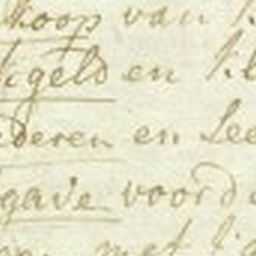 koop van
gelds en
deren en Lee
gave voord
met